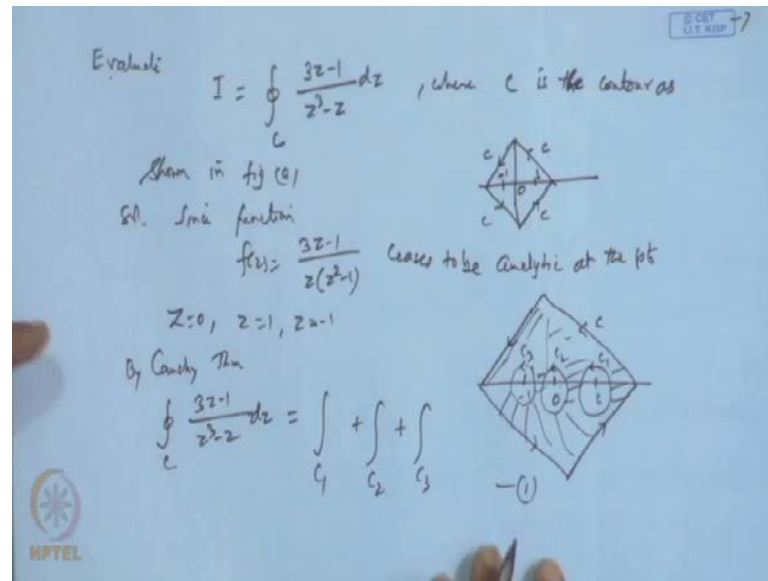 © CET
I.I.T. KGP
-7
Evaluate
I = ∮_C (3z-1)/(z³-z) dz , where C is the contour as
Shown in fig (a)
C C
-1 0 1
C C
Sol. Since function
f(z) = (3z-1)/(z(z²-1)) ceases to be analytic at the pts
z=0, z=1, z=-1
C
C₃ C₂ C₁
-1 0 1
By Cauchy Thm
∮_C (3z-1)/(z³-z) dz = ∫_C₁ + ∫_C₂ + ∫_C₃ —①
NPTEL